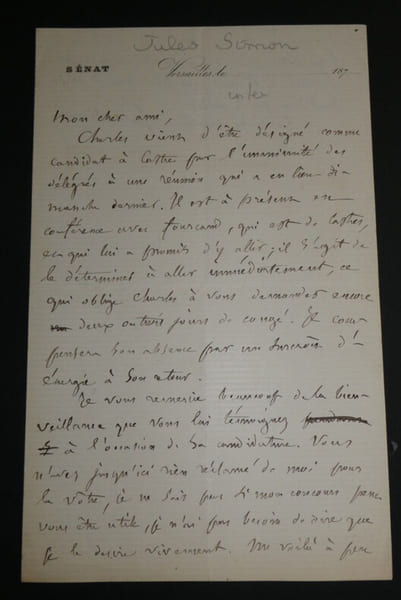 Jules Simon
SÉNAT Versailles, le 187
Mon cher ami,
Charles vient d'être désigné comme
candidat à Castres par l'unanimité des
délégués à une réunion qui a eu lieu di-
manche dernier. Il est à présent en
conférence avec Fourcand, qui est de Castres,
et qui lui a promis d'y aller; il s'agit de
le déterminer à aller immédiatement, ce
qui oblige Charles à vous demander encore
deux ou trois jours de congé. Il com-
pensera son absence par un surcroît d'é-
énergie à son retour.
Je vous remercie beaucoup de la bien-
veillance que vous lui témoignez
à l'occasion de sa candidature. Vous
n'avez jusqu'ici rien réclamé de moi pour
la vôtre, je ne sais pas si mon concours peut
vous être utile, je n'ai pas besoin de dire que
je le désire vivement. Me voilà à peu